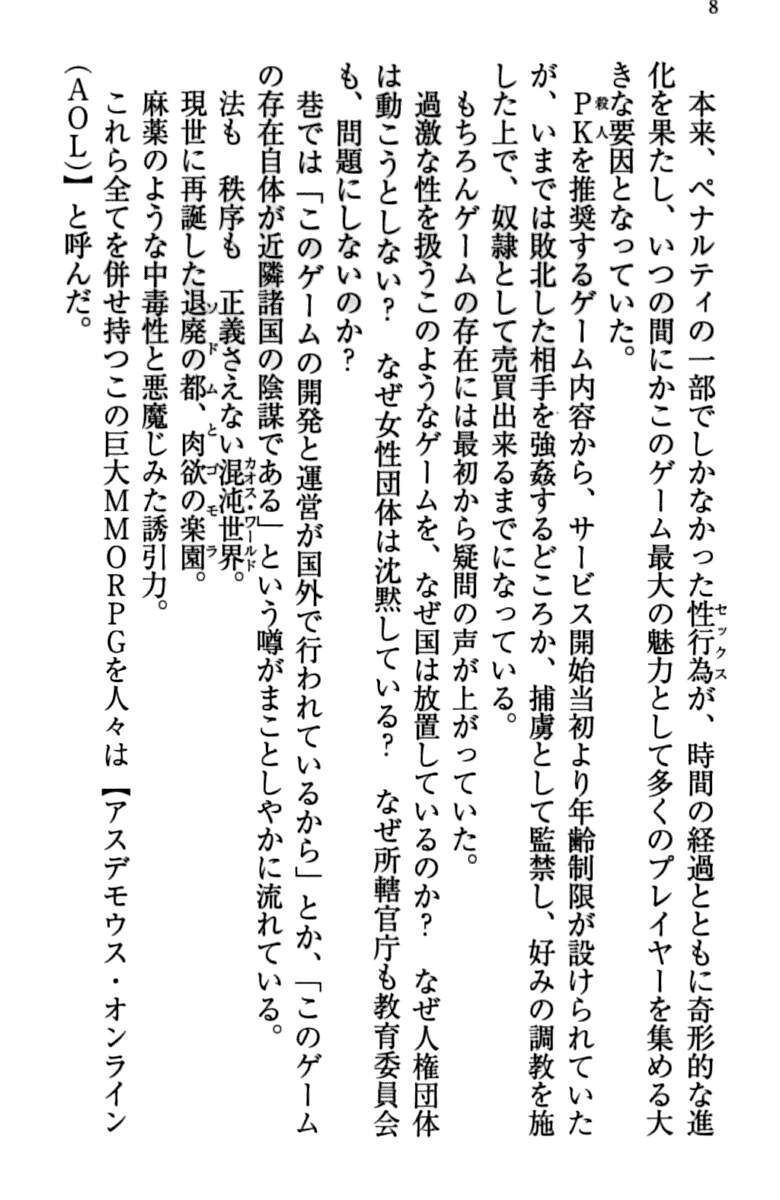 8
本来、ペナルティの一部でしかなかった性行為が、時間の経過とともに奇形的な進
セックス
化を果たし、いつの間にかこのゲーム最大の魅力として多くのプレイヤーを集める大
きな要因となっていた。
PKを推奨するゲーム内容から、サービス開始当初より年齢制限が設けられていた
殺人
が、いまでは敗北した相手を強姦するどころか、捕虜として監禁し、好みの調教を施
した上で、奴隷として売買出来るまでになっている。
もちろんゲームの存在には最初から疑問の声が上がっていた。
過激な性を扱うこのようなゲームを、なぜ国は放置しているのか？　なぜ人権団体
は動こうとしない？　なぜ女性団体は沈黙している？　なぜ所轄官庁も教育委員会
も、問題にしないのか？
巷では「このゲームの開発と運営が国外で行われているから」とか、「このゲーム
の存在自体が近隣諸国の陰謀である」という噂がまことしやかに流れている。
法も　秩序も　正義さえない混沌世界。
カオス・ワールド
現世に再誕した退廃の都、肉欲の楽園。
ソドムとゴモラ
麻薬のような中毒性と悪魔じみた誘引力。
これら全てを併せ持つこの巨大MMORPGを人々は【アスデモウス・オンライン
（AOL）】と呼んだ。